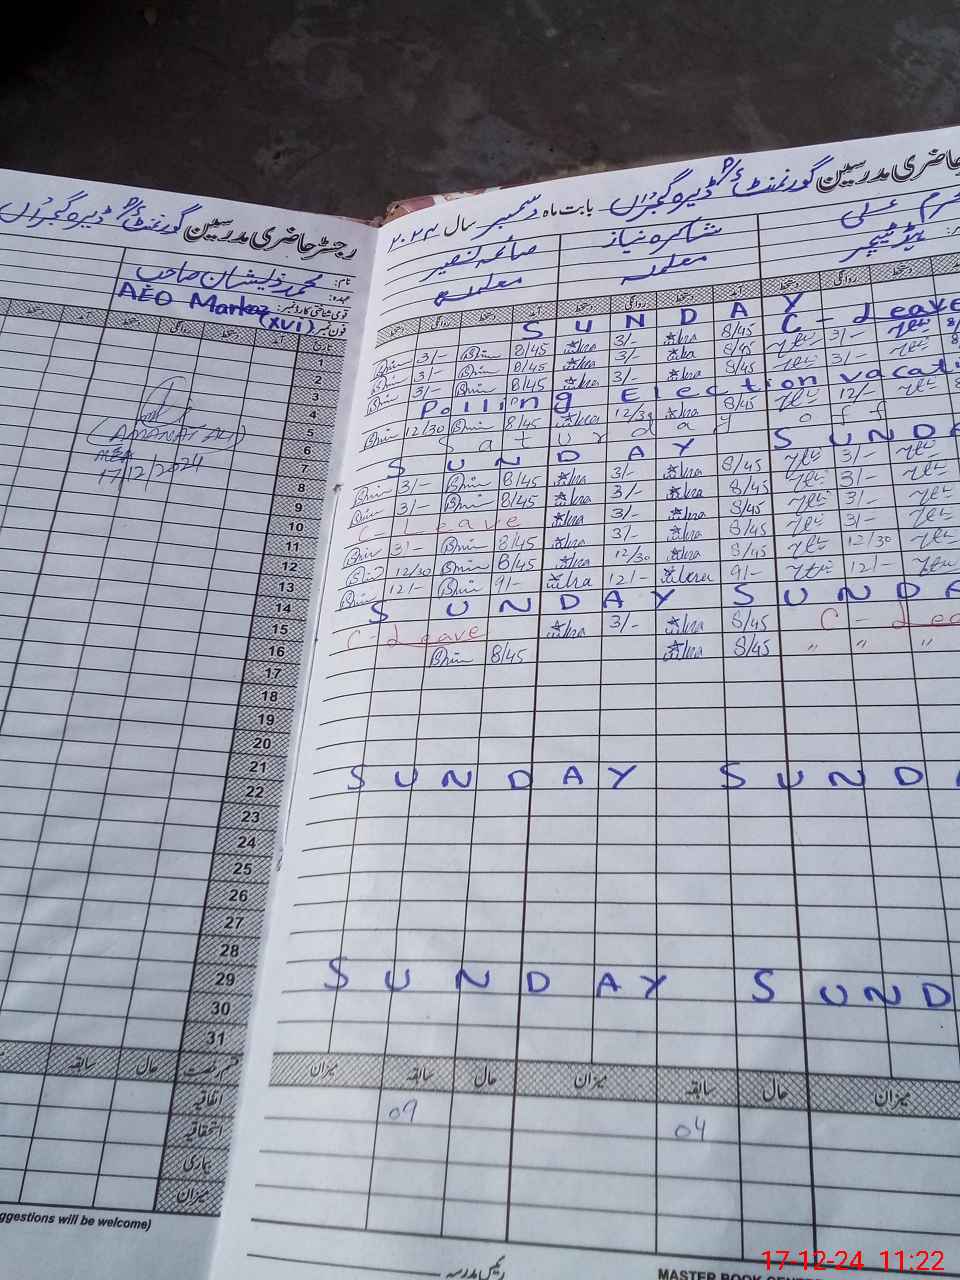 رجسٹر حاضری مدرسین گورنمنٹ
نام: محمد ذیشان صاحب
عہدہ:
AEO Markaz
قومی شناختی کارڈ نمبر:
(XVI)
فون نمبر
تاریخ آمد دستخط روانگی دستخط آمد
1
2
3
4
5
6
7
8
9
10
11
12
13
14
15
16
17
18
19
20
21
22
23
24
25
26
27
28
29
30
31
(AMANAT ALI)
MEA
17/12/2024
قسم رخصت حال سابقہ
اتفاقیہ
استحقاقیہ
بیماری
میزان
ggestions will be welcome)
حاضری مدرسین گورنمنٹ بابت ماہ دسمبر سال ۲۰۲۴
علی شاکرہ نیاز صائمہ نصیر
ہیڈ ٹیچر معلمہ معلمہ
دستخط روانگی دستخط آمد دستخط روانگی دستخط آمد دستخط روانگی دستخط
SUNDAY C-Leave
3/- 8/45 3/- 8/45 3/-
3/- 8/45 3/- 8/45 3/-
3/- 8/45 3/- 8/45
Polling Election vacati
12/30 8/45 12/30 8/45 12/-
Saturday off
SUNDAY SUNDA
3/- 8/45 3/- 8/45 3/-
3/- 8/45 3/- 8/45 3/-
C-Leave 3/- 8/45 3/-
3/- 8/45 3/- 8/45 3/-
12/30 8/45 12/30 8/45 12/30
12/- 9/- 12/- 9/- 12/-
SUNDAY SUNDA
C-Leave 3/- 8/45 C - Lea
8/45 8/45 " " "
SUNDAY SUNDA
SUNDAY SUND
میزان سابقہ حال میزان سابقہ حال میزان
09 04
رئیس مدرسہ
MASTER BOOK CENT
17-12-24 11:22